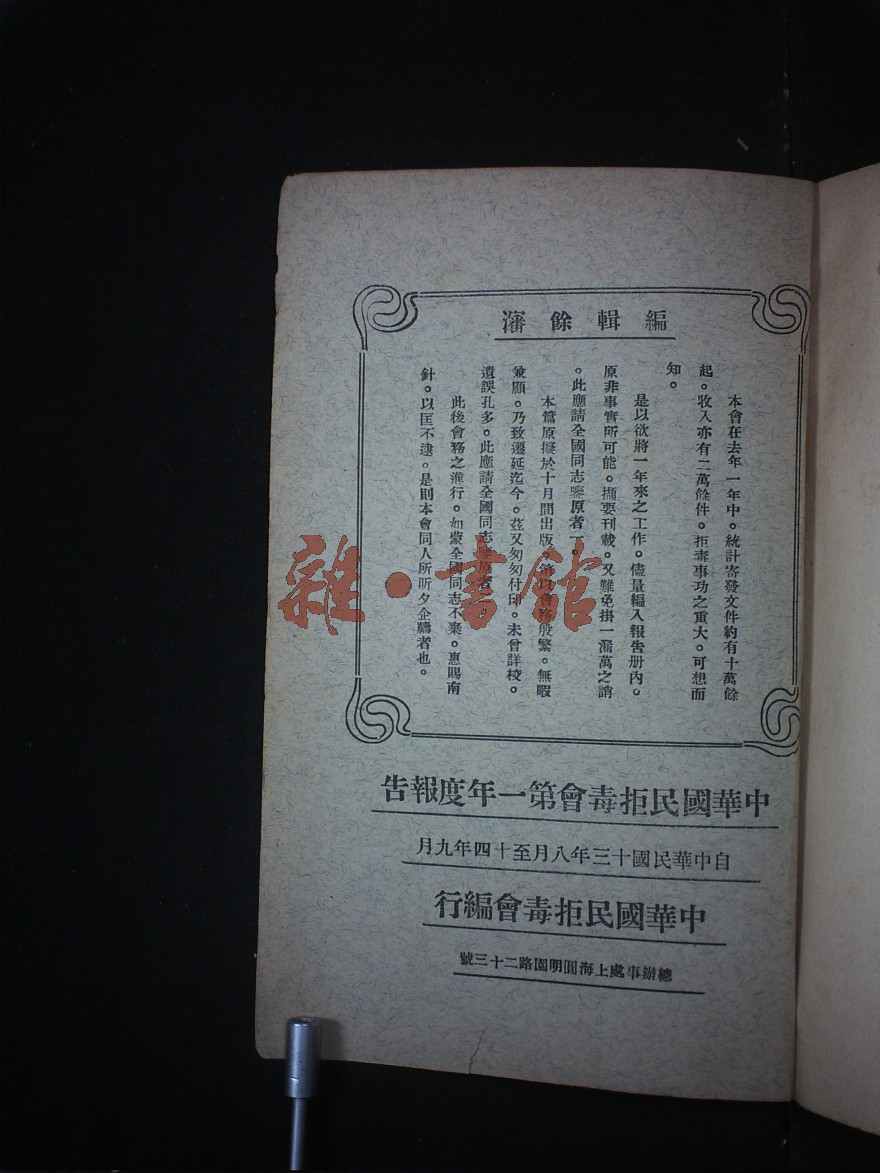 編輯餘瀋
本會在去年一年中。統計寄發文件約有十萬餘
起。收入亦有二萬餘件。拒毒事功之重大。可想而
知。
是以欲將一年來之工作。儘量編入報告册內。
原非事實所可能。擷要刊載。又難免掛一漏萬之誚
。此應請全國同志鑒原者一。
本篇原擬於十月間出版。第以會務殷繁。無暇
兼顧。乃致遷延迄今。茲又匆匆付印。未曾詳校。
遺誤孔多。此應請全國同志鑒原者二。
此後會務之進行。如蒙全國同志不棄。惠賜南
針。以匡不逮。是則本會同人所昕夕企禱者也。
中華國民拒毒會第一年度報告
自中華民國十三年八月至十四年九月
中華國民拒毒會編行
總辦事處上海圓明園路二十三號
雜·書館